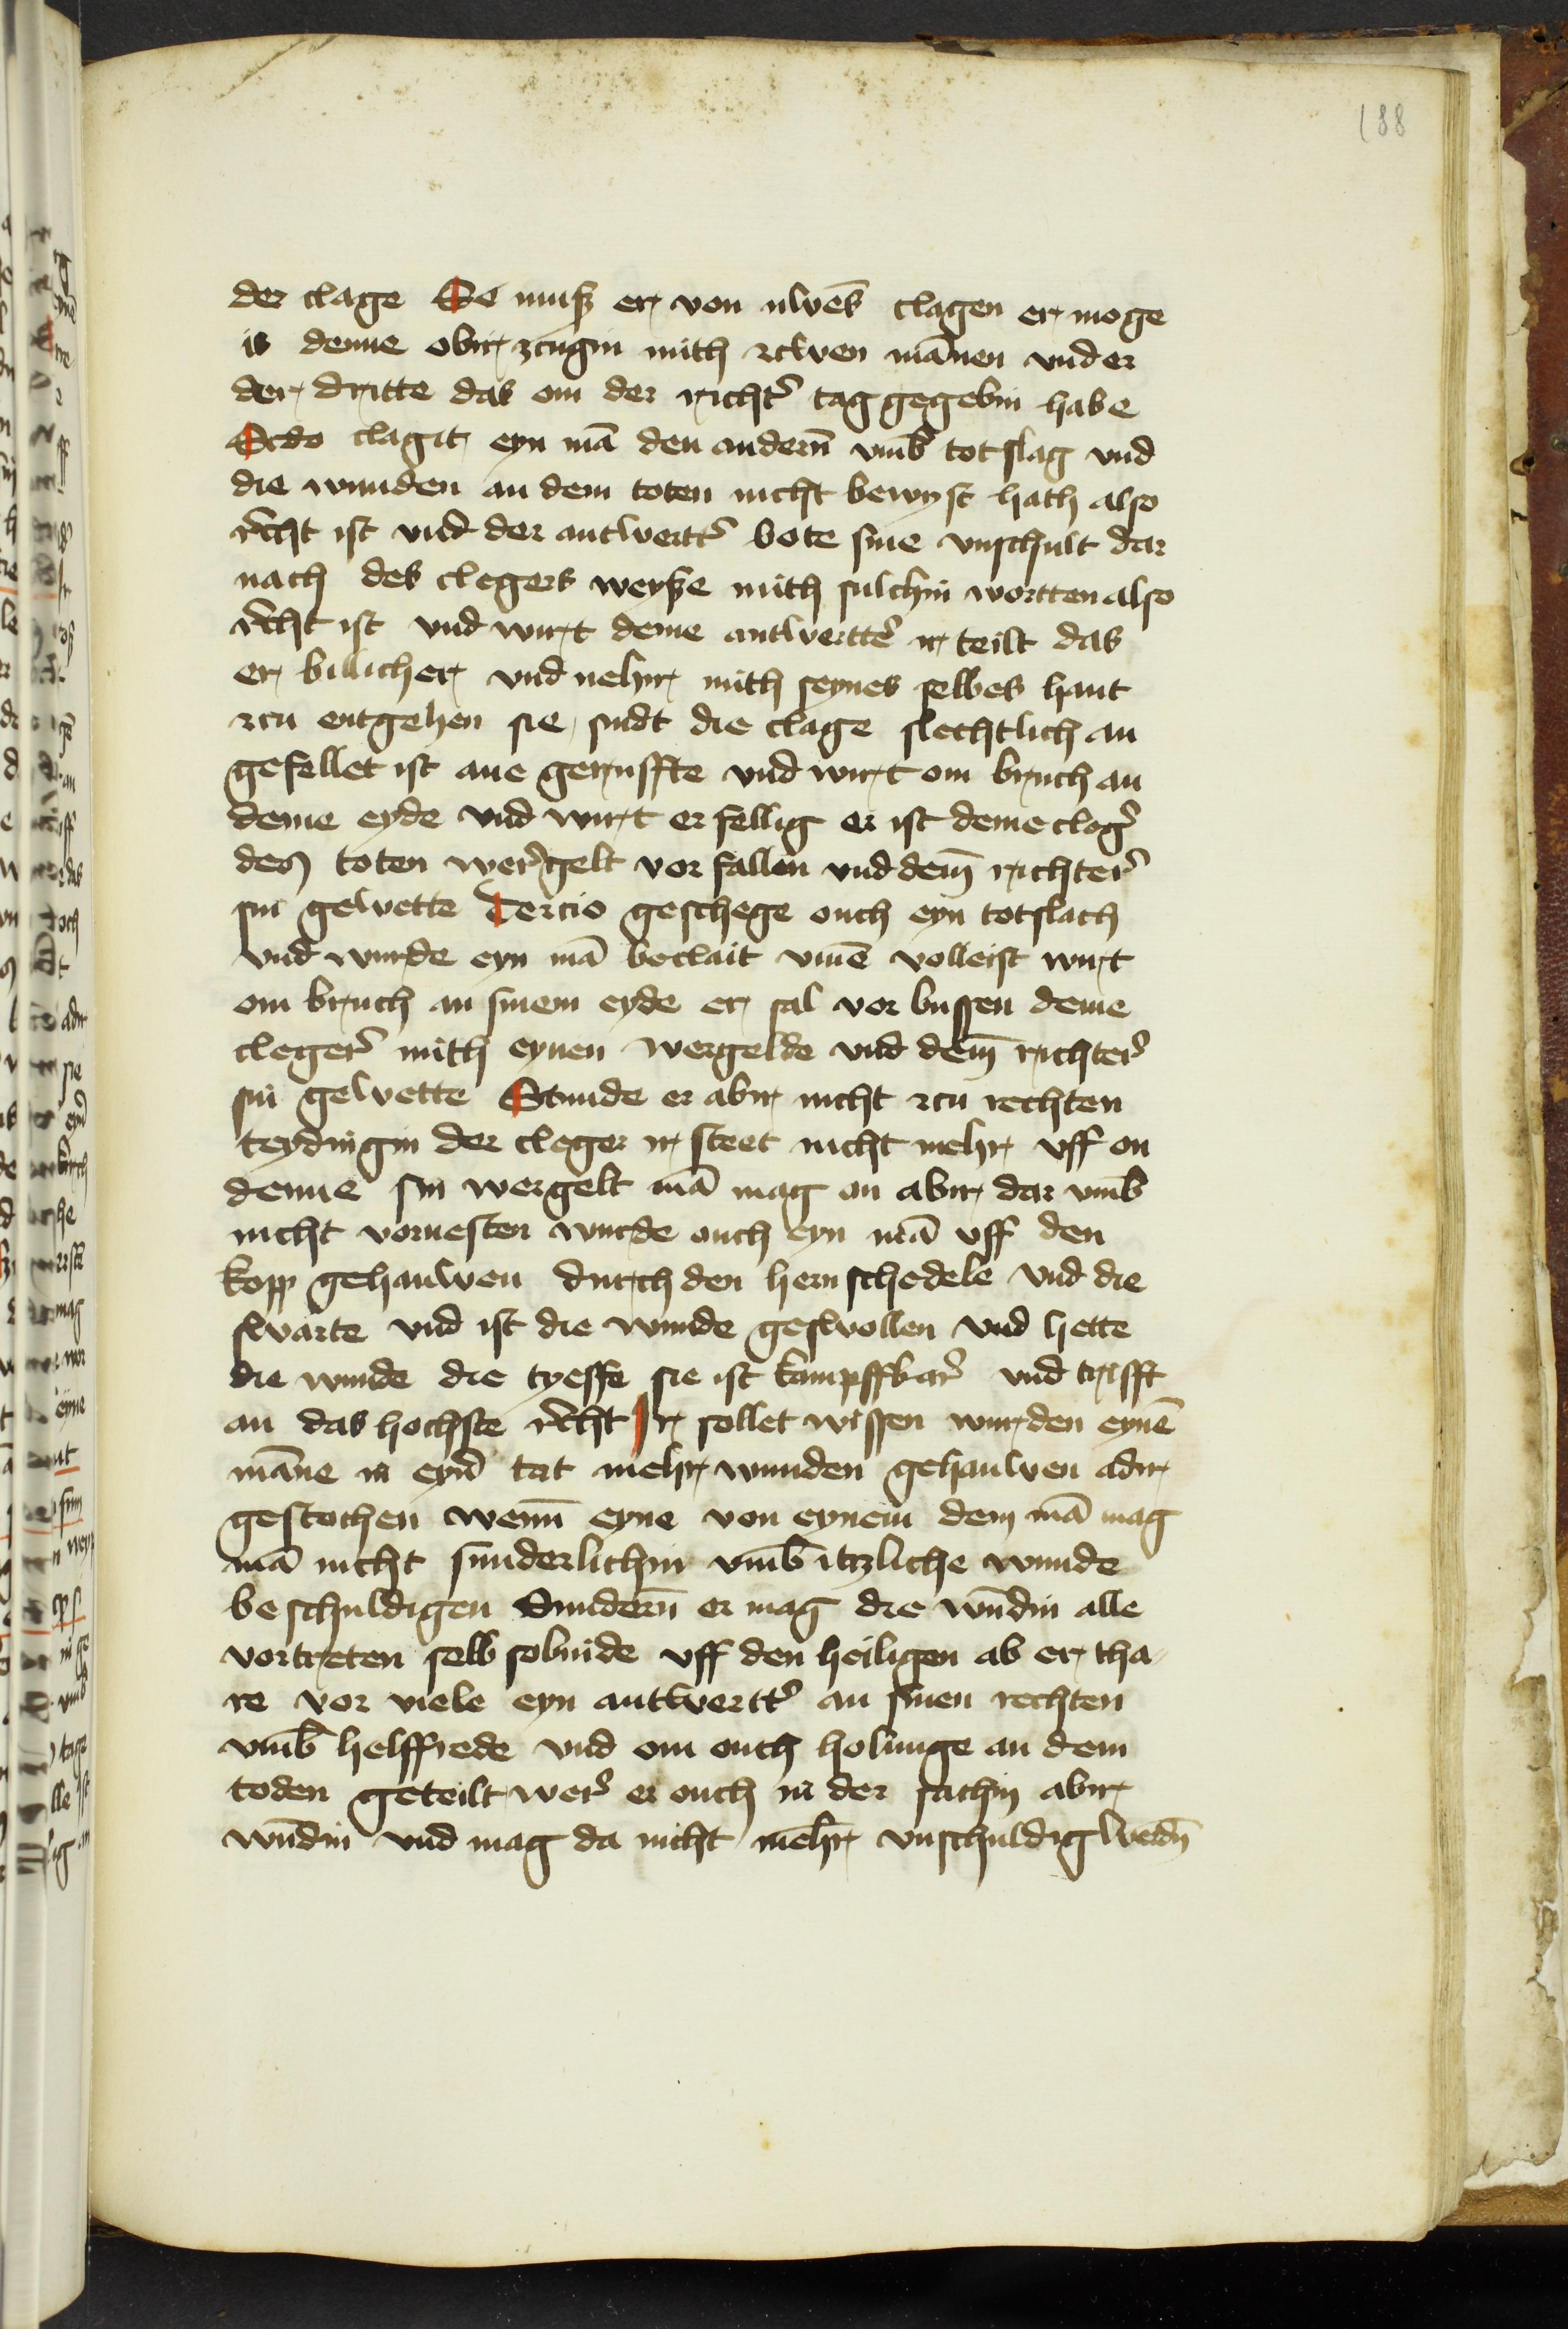 188
der clage So muß er von nuwēs clagen er moge
is denne obir zcugin mith zcwen mānen vnd er
der dritte das om der richt͛ tag gegebin habe
Scdo clagit eyn mā den andern̄ vmb̄ totslag vnd
die wunden an dem toten nicht bewyst hath also
r̄cht ist vnd der antwertt͛ bote sine vnschult dar
nach des clegers weyße mith sulchin wortten also
r̄cht ist vnd wirt deme antwertt͛ ir teilt das
er billicher vnd nehir mith seynes selbes hant
zcu entgehen sie sindt die clage slechtlich an
gefellet ist ane geruffte vnd wirt om bruch an
deme eyde vnd wirt er fellig er ist deme cleg͛
des toten wer͛gelt vor fallen vnd dem̄ richter͛
sin gewette Tercio geschege ouch eyn totslach
vnd wurde eyn mā beclait vmē volleist wirt
om bruch an sinem eyde er sal vor bussen deme
cleger͛ mith eynen wergelde vnd dem̄ richter͛
sin gewette Stunde er abir nicht zcu rechten
teydingin der cleger ir steet nicht mehr uff on
denne sin wergelt mā mag on abir dar vmb̄
nicht voruesten wurde ouch eyn mā uff den
kopp gehauwen durch den hern schedele vnd die
swarte vnd ist die wunde geswollen vnd hette
die wunde die tyeffe sie ist kampffbar͛ vnd trifft
an das hochste r̄cht Ir sollet wissen wurden eynē
māne in eyn͛ tat mehr wunden gehauwen adir
gestochen wenn̄ eyne von eynem dem mā mag
mā nicht sunderlichin vmb̄ itzliche wunde
beschuldigen Sundern̄ er mag die wūdin alle
vortreten selb sobinde uff den heiligen ab er tha
re vor viele eyn antwertt͛ an sinen rechten
vmb̄ helffrede vnd om ouch holunge an dem
toden geteilt wer͛ er ouch in der sachin abir
wūdin vnd mag da nicht mehr vnschuldig werdn̄